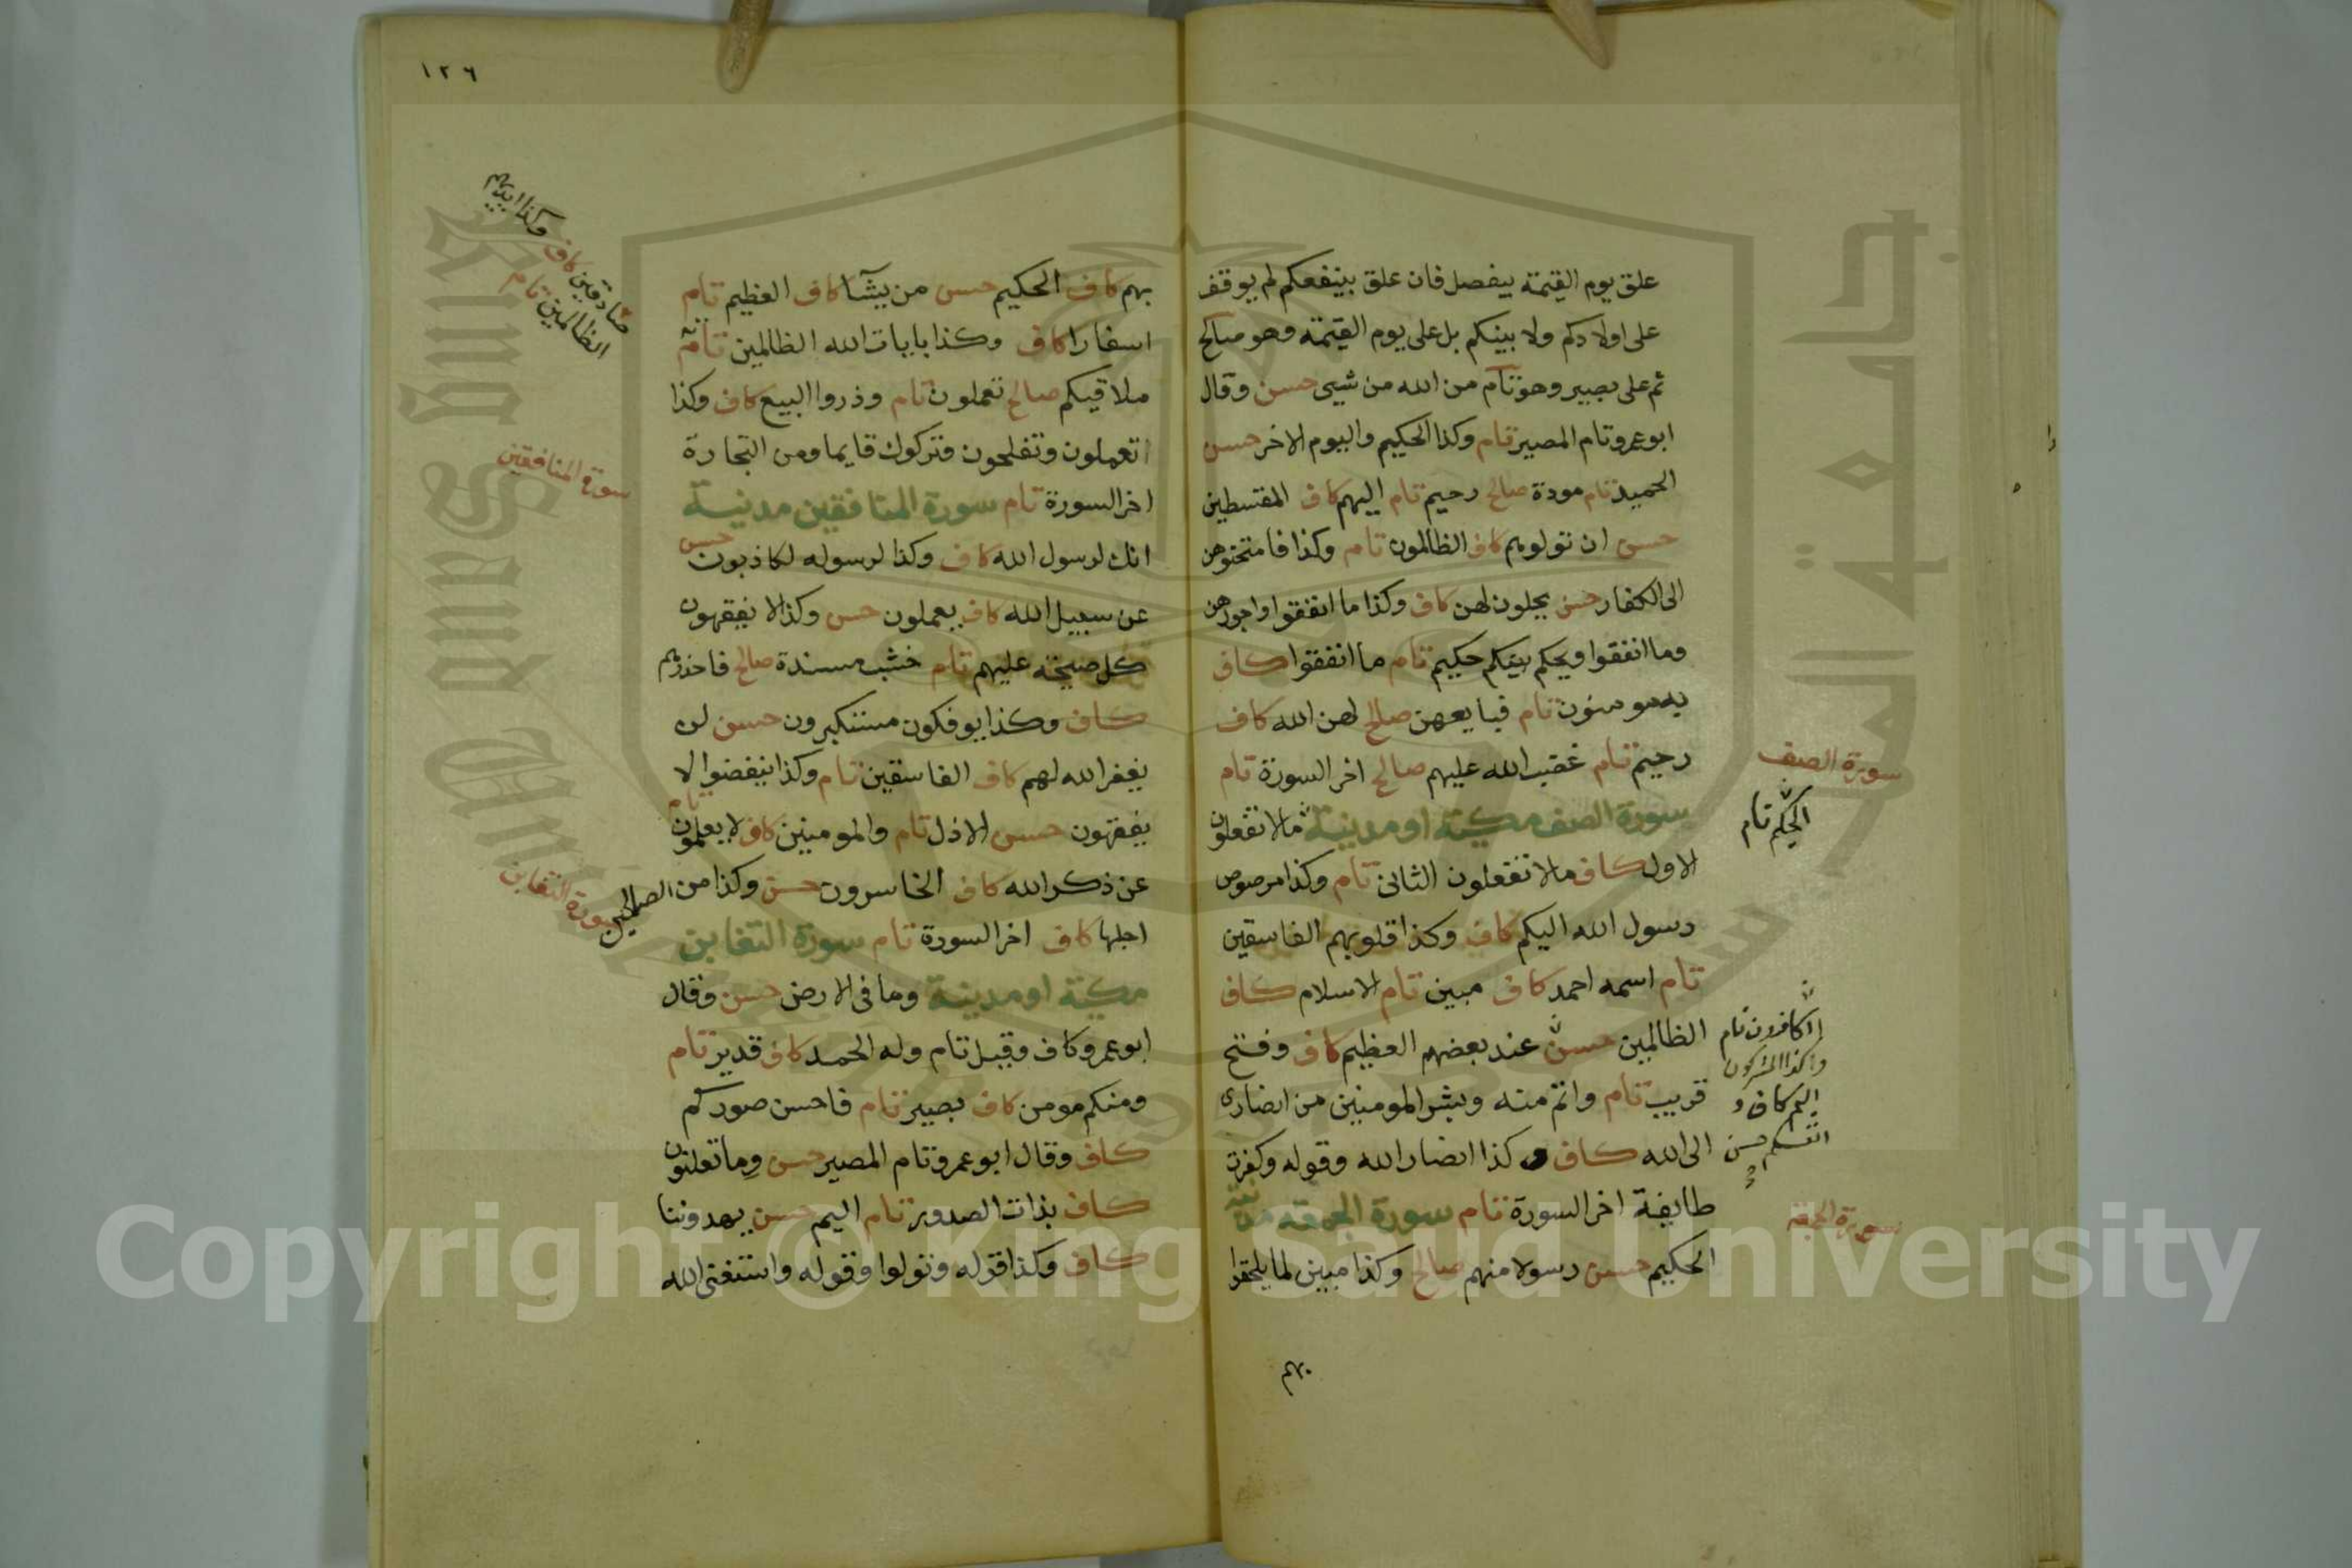 علق يوم القيمة بيفصل فان علق بينفعكم لم يوقف
على اولادكم ولا بينكم بل على يوم القيمة وهو صالح
ثم على بصير وهو تام من الله من شيى حسن وقال
ابو عمرو تام المصير تام وكذا الحكيم واليوم الاخر حسن
الحميد تام مودة صالح رحيم تام اليهم كاف المقسطين
حسن ان تولوهم كاف الظالمون تام وكذا فامتحنوهن
الى الكفار حسن يحلون لهن كاف وكذا ما انفقوا واجورهن
وما انفقوا ويحكم بينكم حكيم تام ما انفقوا كاف
به مومنون تام فبايعهن صالح لهن الله كاف
رحيم تام غضب الله عليهم صالح اخر السورة تام
سورة الصف
سورة الصف مكية او مدنية ما لا تفعلون
الحكيم تام
الاول كاف ما لا تفعلون الثانى تام وكذا مرصوص
رسول الله اليكم كاف وكذا قلوبهم الفاسقين
تام اسمه احمد كاف مبين تام الاسلام كاف
الظالمين حسن عند بعضهم العظيم كاف وفتح
الكافرون تام
وكذا المشركون
قريب تام واتم منه وبشر المومنين من انصارى
اليم كاف و
الى الله كاف و كذا انصار الله وقوله وكفرت
انفسكم حسن
طايفة اخر السورة تام سورة الجمعة مدنية
سورة الجمعة
الحكيم حسن رسولا منهم صالح وكذا مبين لما يلحقوا
بهم
١٢٦
بهم كاف الحكيم حسن من يشآ كاف العظيم تام
اسفارا كاف وكذا بايات الله الظالمين تام
صادقين كاف وكذا ايديهم
الظالمين تام
ملاقيكم صالح تعملون تام وذروا البيع كاف وكذا
تعملون وتفلحون وتركوك قايما ومن التجارة
سورة المنافقين
اخر السورة تام سورة المنافقين مدنية
انك لرسول الله كاف وكذا لرسوله لكاذبون حسن
عن سبيل الله كاف يعملون حسن وكذا لا يفقهون
كل صيحة عليهم تام خشب مسندة صالح فاحذرهم
كاف وكذا يوفكون مستكبرون حسن لن
يغفر الله لهم كاف الفاسقين تام وكذا ينفضوا لا
يفقهون حسن الاذل تام والمومنين كاف لا يعلمون تام
عن ذكر الله كاف الخاسرون حسن وكذا من الصالحين
سورة التغابن
اجلها كاف اخر السورة تام سورة التغابن
مكية او مدنية وما فى الارض حسن وقال
ابو عمرو كاف وقيل تام وله الحمد كاف قدير تام
ومنكم مومن كاف بصير تام فاحسن صوركم
كاف وقال ابو عمرو تام المصير حسن وما تعلنون
كاف بذات الصدور تام اليم حسن يهدوننا
كاف وكذا قوله وتولوا وقوله واستغنى الله
جامعة الملك سعود
King Saud University
Copyright © King Saud University